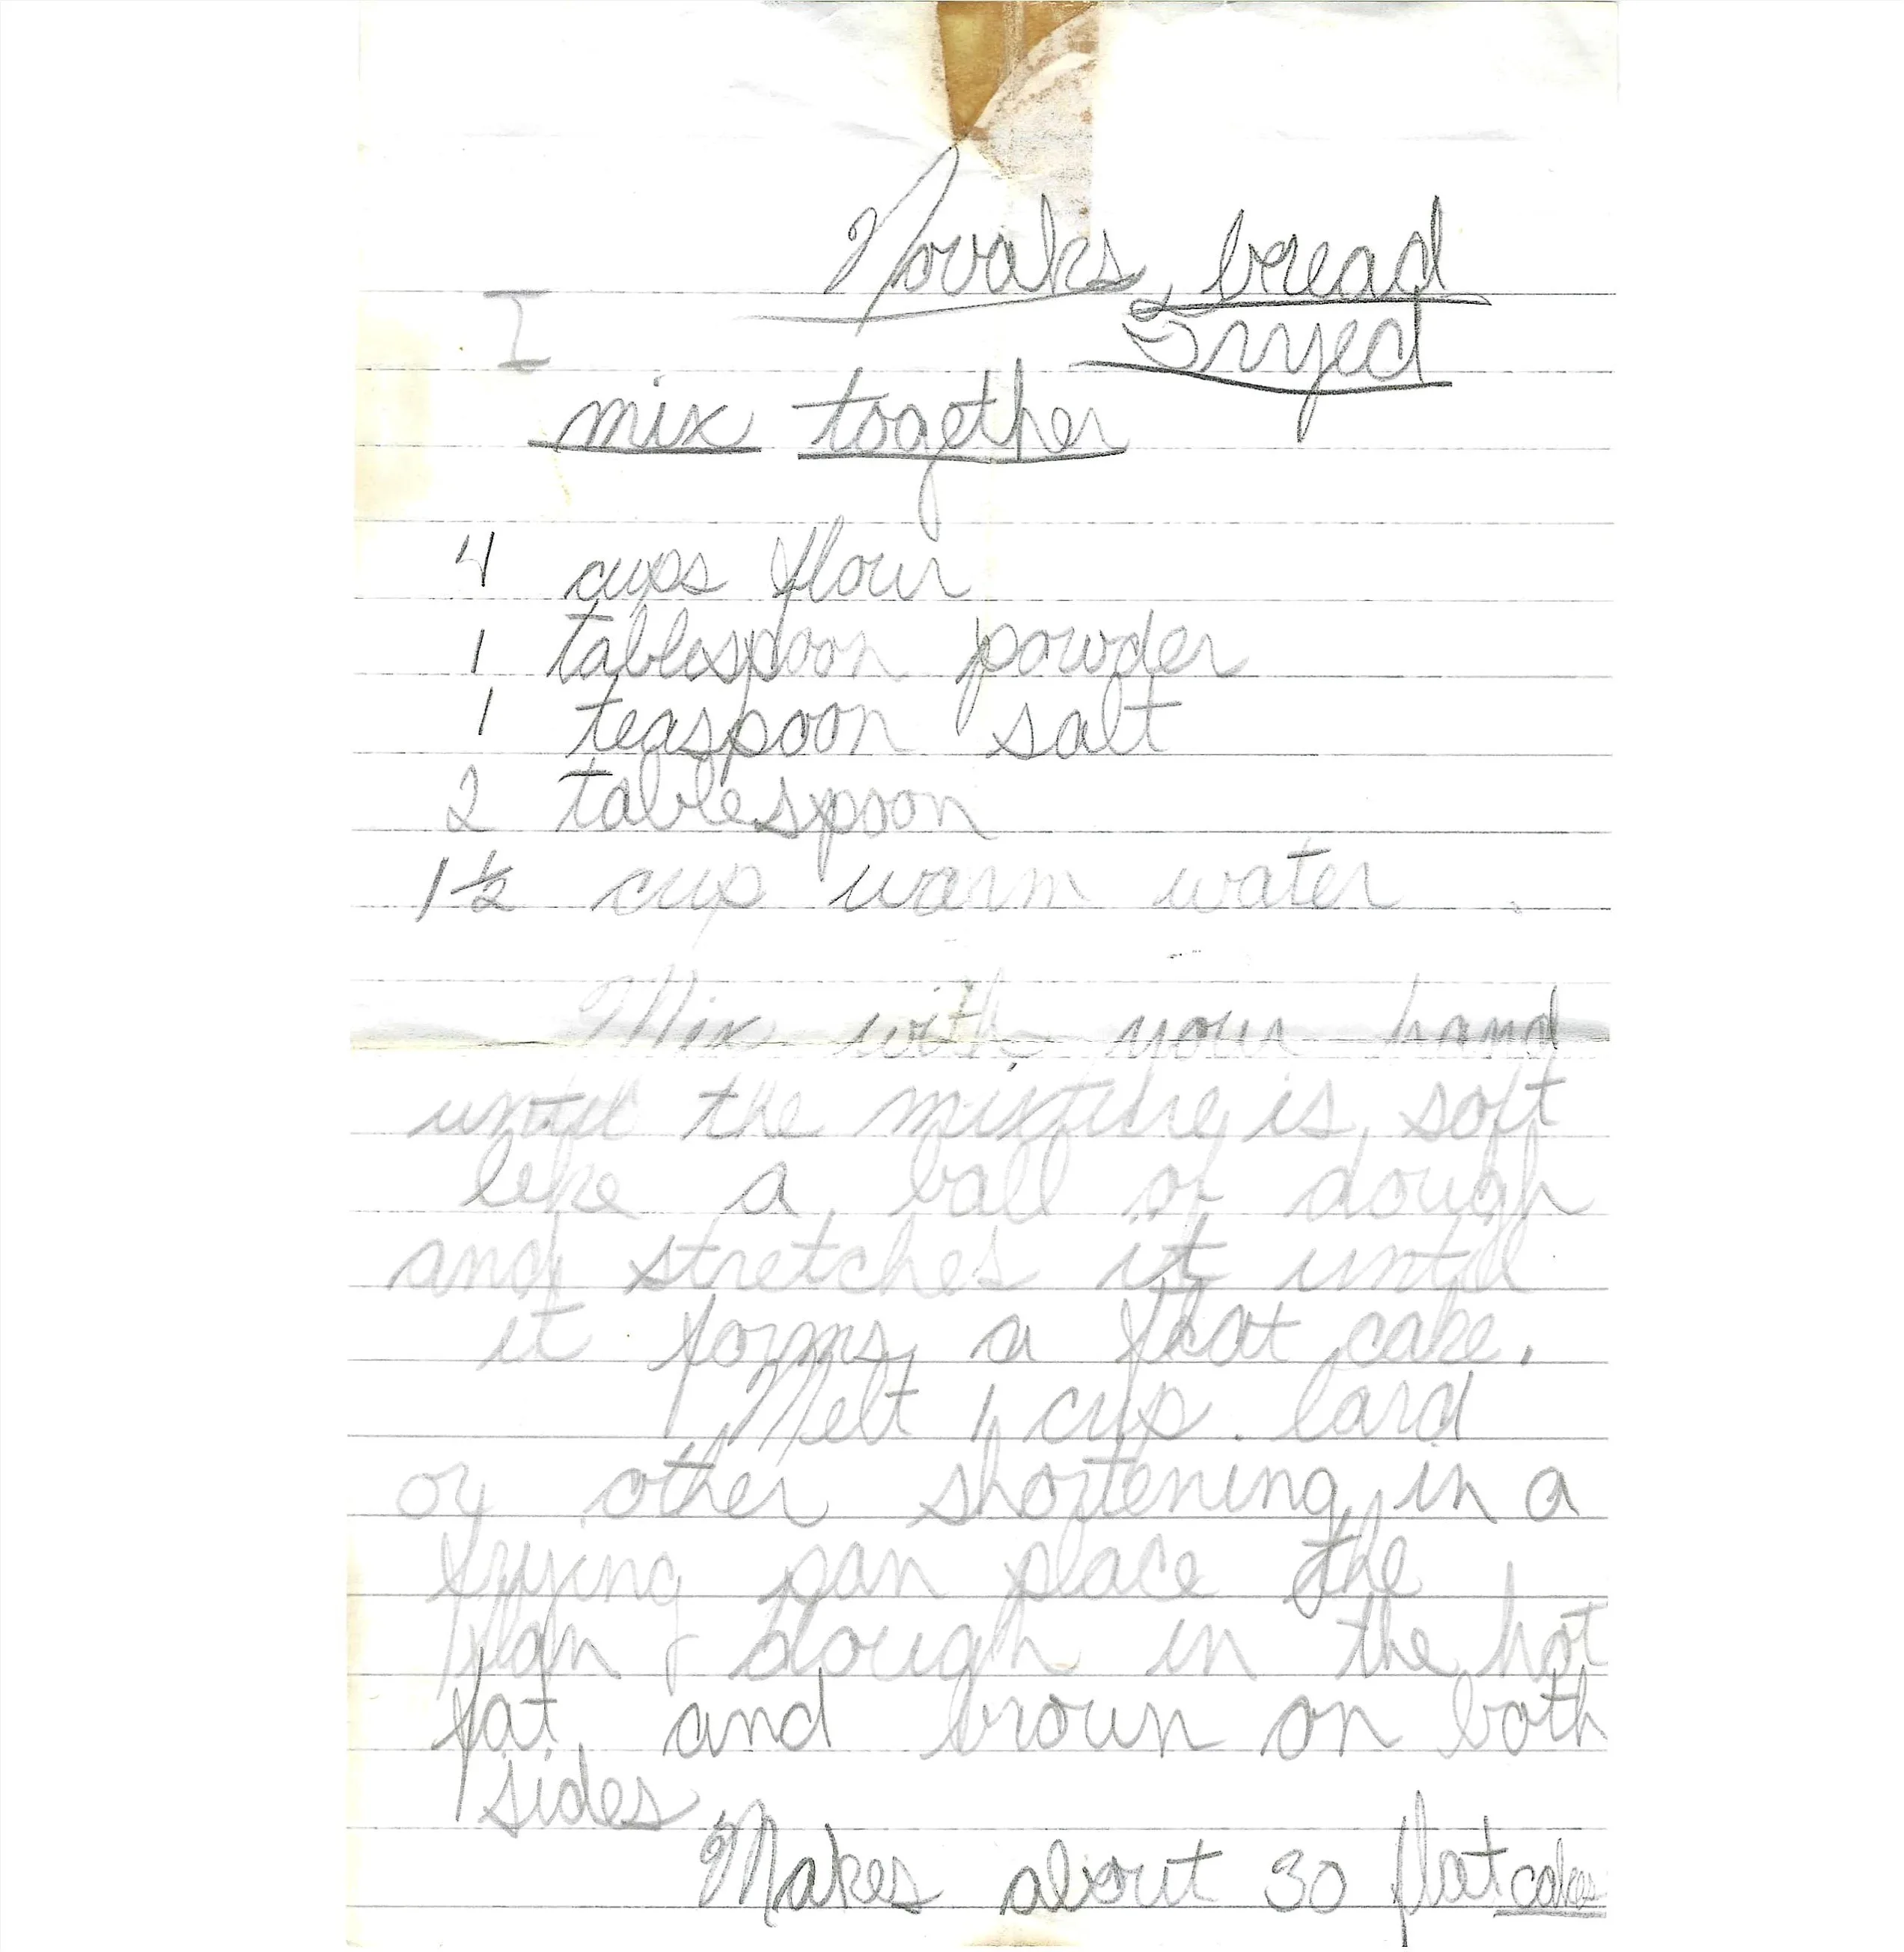 Novaks bread
Fryed
I
mix together
4 cups flour
1 tablespoon powder
1 teaspoon salt
2 tablespoon
1½ cup warm water
Mix with your hand
until the mixture is soft
like a ball of dough
and stretches it until
it forms a flat cake.
Melt 1 cup lard
or other shortening in a
frying pan place the
dough in the hot
fat and brown on both
sides
Makes about 30 flat cakes